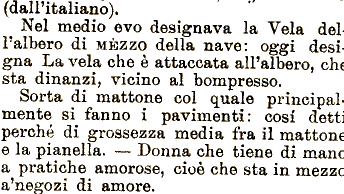 (dall'italiano).
Nel medio evo designava la Vela del-
l'albero di MÈZZO della nave: oggi desi-
gna La vela che è attaccata all'albero, che
sta dinanzi, vicino al bompresso.
Sorta di mattone col quale principal-
mente si fanno i pavimenti: cosí detti
perché di grossezza media fra il mattone
e la pianella. — Donna che tiene di mano
a pratiche amorose, cioè che sta in mezzo
a'negozi di amore.